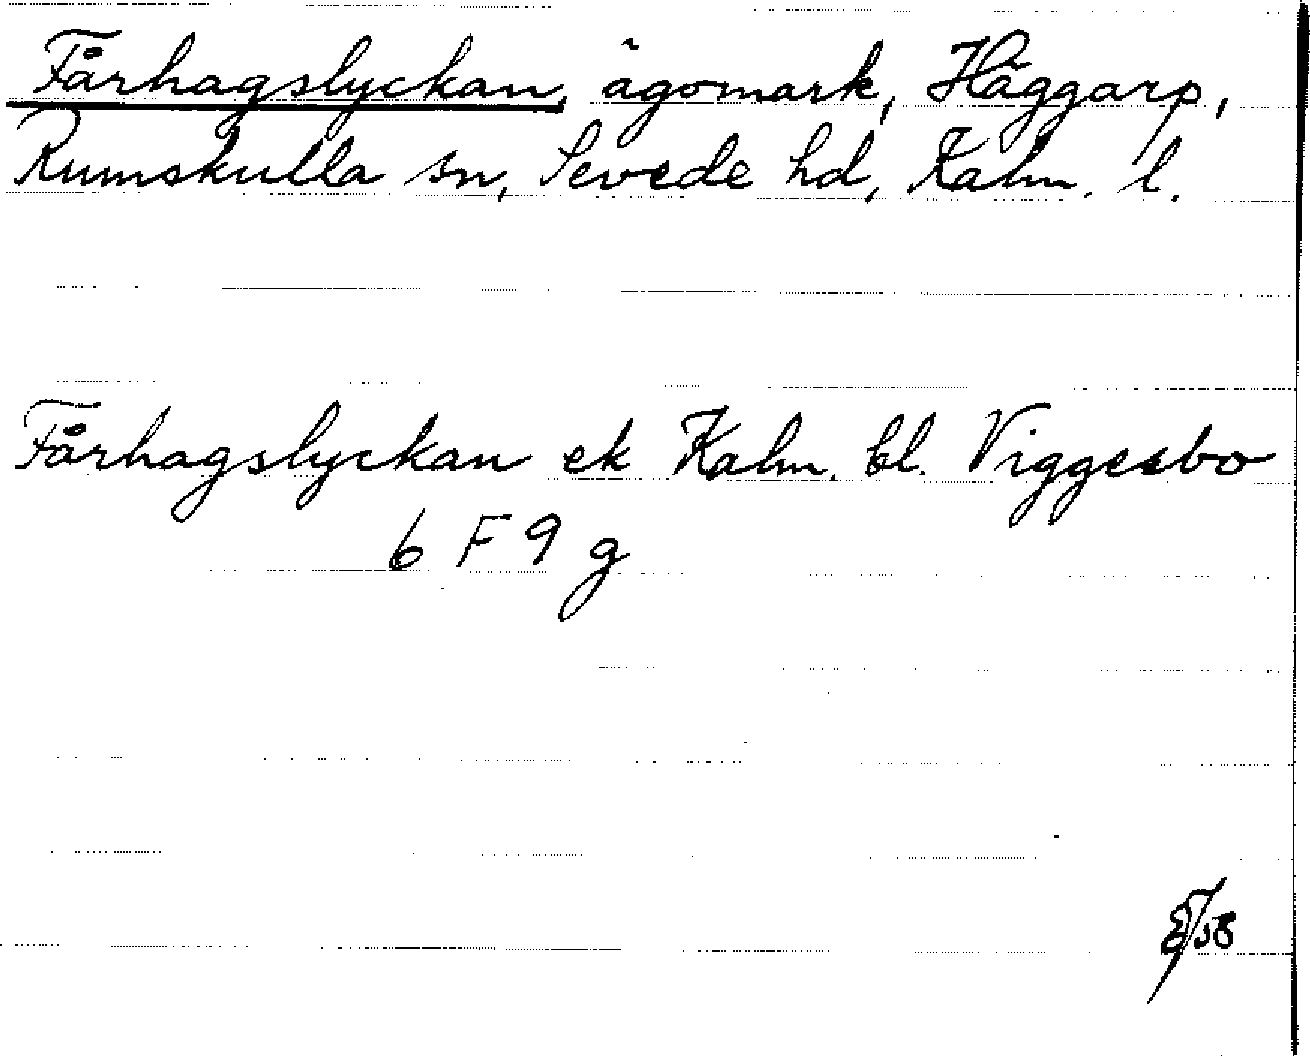 Fårhagslyckan, ägomark, Häggarp,
Rumskulla sn, Sevede hd, Kalm. l.
Fårhagslyckan ek Kalm. bl. Viggesbo
6 F 9 g